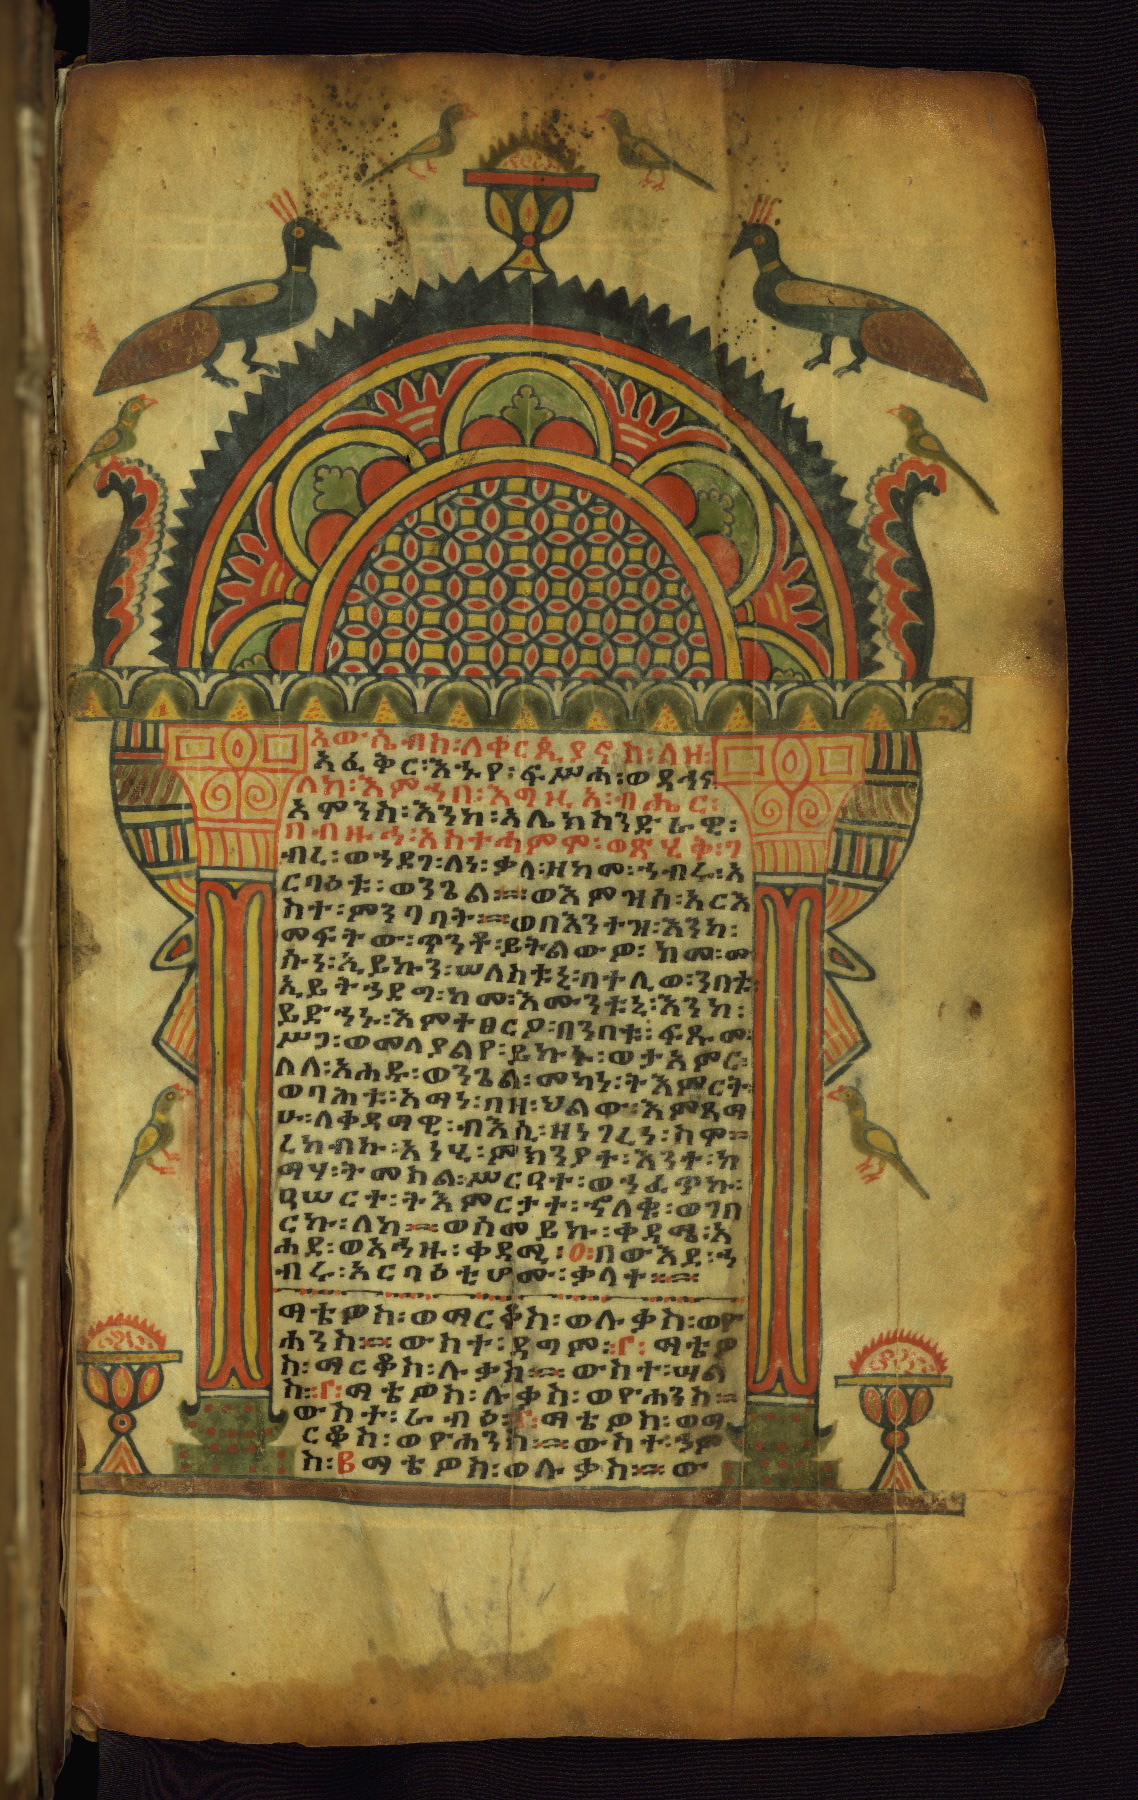 አውሴብስ፡ለቀርጲያኖስ፡ለዝ፡
አፈቅር፡እኁየ፡ፍሥሐ፡ወዳኅና
ለከ፡እምኀበ፡እግዚአ፡ብሔር፡
አሞንስ፡እንከ፡እሌክስንድራዊ፡
በብዙኅ፡አስተሓምሞ፡ወጽሂቅ፡ገ
ብረ፡ወኀደገ፡ለነ፡ቃለ፡ዘከመ፡ኅብሩ፡አ
ርባዕቱ፡ወንጌል፡፡ወእምዝስ፡አርእ
ስተ፡ምንባባት፡፡ወበእንተዝ፡እንከ፡
መፍትው፡ጥንቶ፡ይትልውዎ፡ከመ፡
ኢይትኀደግ፡ከመ፡እሙንቱኒ፡እንከ፡
ይድኀኑ፡እምተፀርዖ፡በንባቱ፡ፍጹመ፡
ሥጋ፡ወመለያልየ፡ይኩኑ፡ወታአምር፡
ለለ፡አሐዱ፡ወንጌል፡መካነ፡ትእምርት፡
ወባሕቱ፡አማነ፡በዘ፡ህልው፡እምጻማ
ሁ፡ለቀዳማዊ፡ብእሲ፡ዘነገረነ፡ከሞ፡
ረከብኩ፡አነሂ፡ምክንያተ፡እንተ፡ካ
ማሃ፡ትመስል፡ሥርዓተ፡ወኀፈጥኩ፡
ዓሠርተ፡ትእምርታተ፡ኆለቁ፡ወገበ
ርኩ፡ለከ፡፡ወስመ፡ይኩ፡ቀዳሜ፡አ
ሐደ፡ወእኅዙ፡ቀዳሚ፡፩፡በውእደ፡ኀ
ብሩ፡አርባዕቲሆሙ፡ቃላተ፡፡
ማቴዎስ፡ወማርቆስ፡ወሉቃስ፡ወዮ
ሐንስ፡፡ውስተ፡ዳግም፡፫፡ማቴዎ
ስ፡ማርቆስ፡ሉቃስ፡፡ውስተ፡ሣል
ስ፡፫፡ማቴዎስ፡ሉቃስ፡ወዮሐንስ፡፡
ውስተ፡ራብዕ፡፫፡ማቴዎስ፡ወማ
ርቆስ፡ወዮሐንስ፡፡ውስተ፡ኀም
ስ፡፪ማቴዎስ፡ወሉቃስ፡፡ው